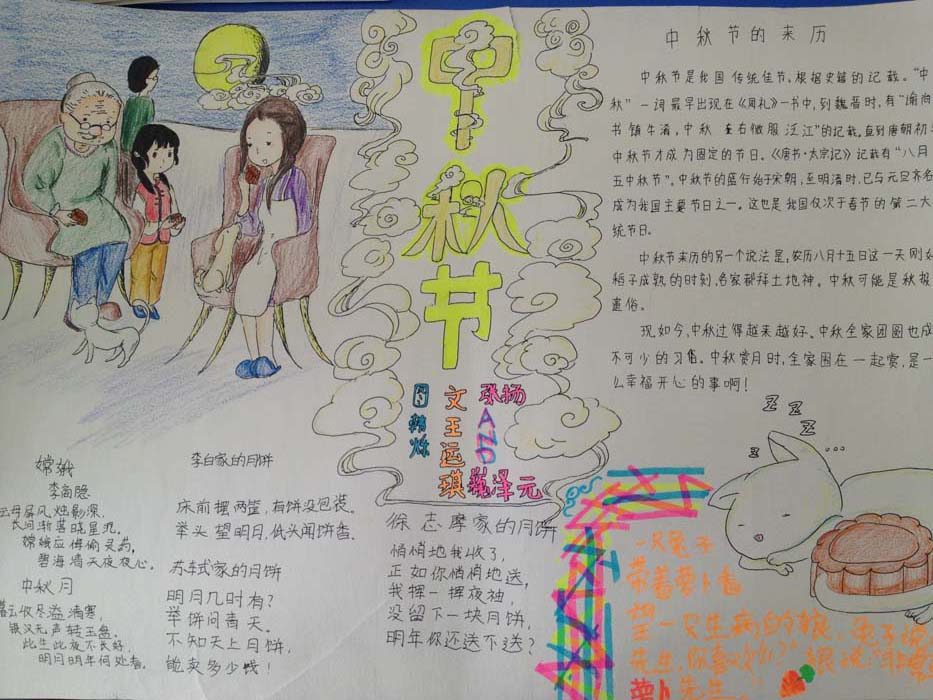 中秋节
中秋节的来历
中秋节是我国传统佳节，根据史籍的记载。“中
秋”一词最早出现在《周礼》一书中，到魏晋时，有“谕尚
书镇牛渚，中秋 左右微服泛江”的记载。直到唐朝初
中秋节才成为固定的节日。《唐书·太宗记》记载有“八月
五中秋节”。中秋节的盛行始于宋朝，至明清时，已与元旦齐名
成为我国主要节日之一。这也是我国仅次于春节的第二大
统节日。
中秋节来历的另一个说法是，农历八月十五日这一天刚好
稻子成熟的时刻，各家都拜土地神。中秋可能是秋报
遗俗。
现如今，中秋过得越来越好。中秋全家团圆也成
不可少的习俗。中秋赏月时，全家围在一起赏，是一
么幸福开心的事啊！
图
文 王运琪
张杨
AND
泽元
嫦娥
李商隐
云母屏风烛影深，
长河渐落晓星沉。
嫦娥应悔偷灵药，
碧海青天夜夜心。
中秋月
暮云收尽溢清寒，
银汉无声转玉盘。
此生此夜不长好，
明月明年何处看。
李白家的月饼
床前摆两盟，有饼没包装。
举头望明日，低头闻饼香。
苏轼家的月饼
明月几时有？
举饼问青天。
不知天上月饼，
能卖多少钱！
徐志摩家的月饼
悄悄地我收了，
正如你悄悄地送，
我挥一挥衣袖，
没留下一块月饼，
明年你还送不送？
z z z z ...
一只兔子
带着萝卜看
望一只生病的狼，兔子说：
先生，你喜欢
萝卜先生